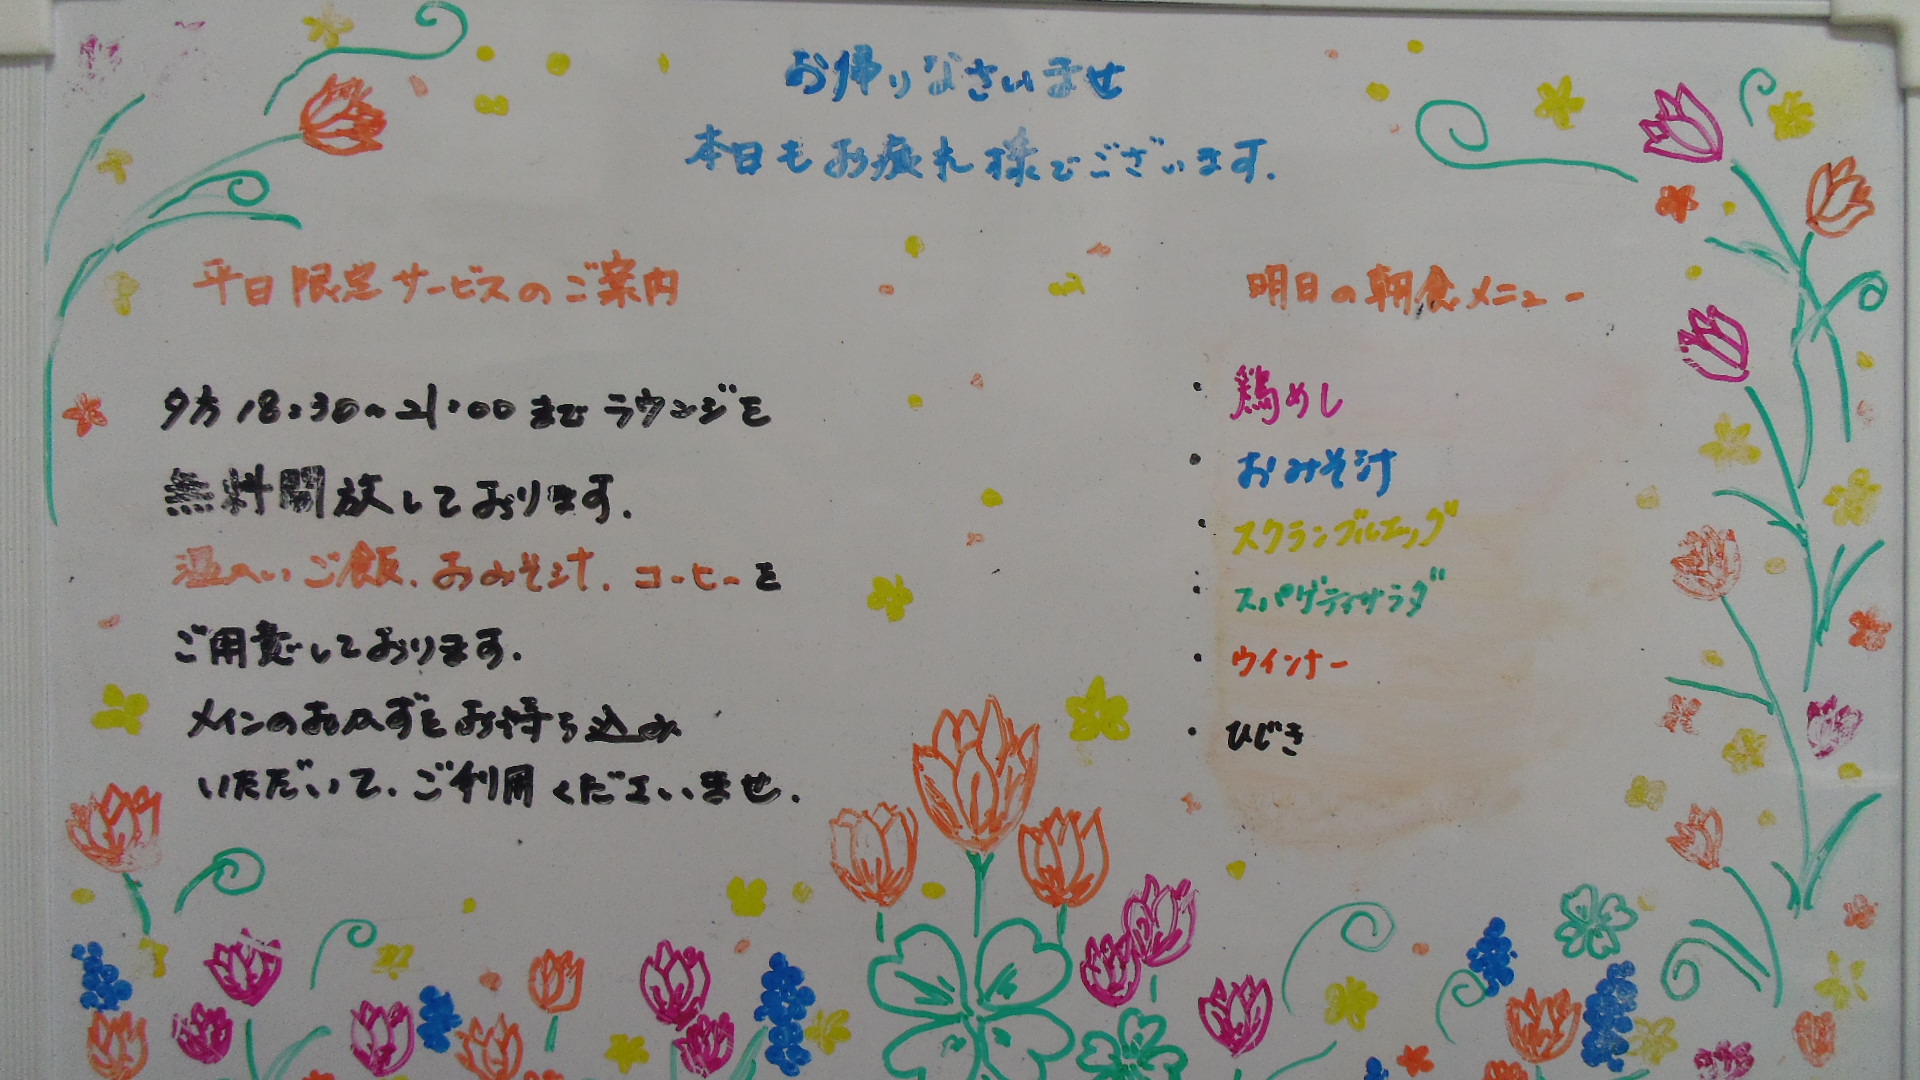 お帰りなさいませ
本日もお疲れ様でございます.
平日限定サービスのご案内
夕方18:30~21:00までラウンジを
無料開放しております.
温かいご飯.おみそ汁.コーヒーを
ご用意しております.
メインのおかずをお持ち込み
いただいて.ご利用くださいませ.
明日の朝食メニュー
・鶏めし
・おみそ汁
・スクランブルエッグ
・スパゲティサラダ
・ウインナー
・ひじき